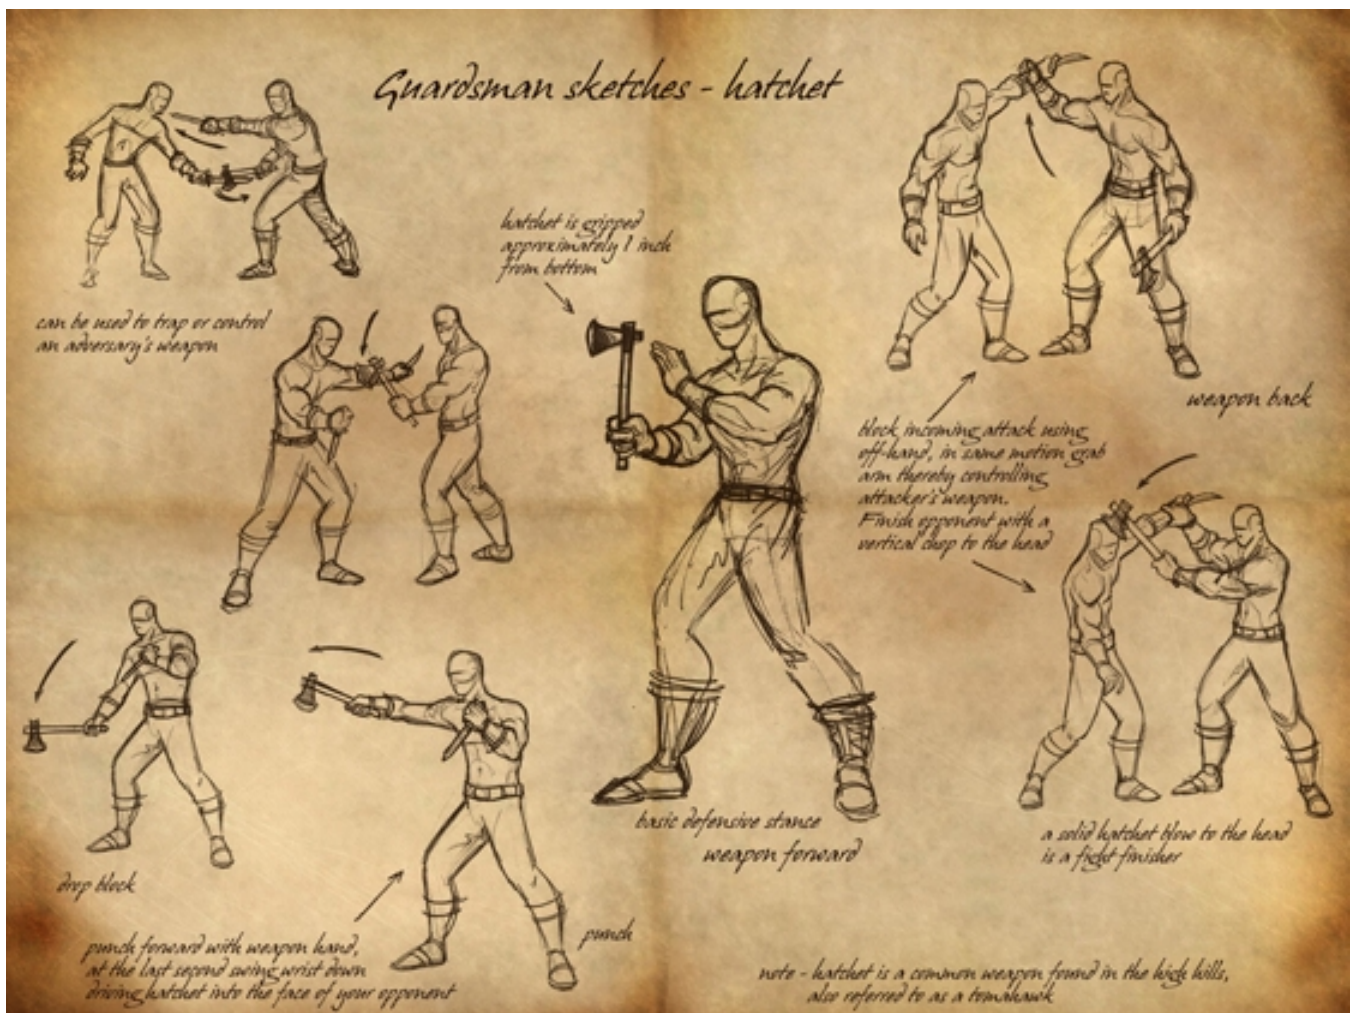 Guardsman sketches - hatchet
hatchet is gripped
approximately 1 inch
from bottom
can be used to trap or control
an adversary's weapon
weapon back
block incoming attack using
off-hand, in same motion grab
arm thereby controlling
attacker's weapon.
Finish opponent with a
vertical chop to the head
basic defensive stance
weapon forward
a solid hatchet blow to the head
is a fight finisher
drop block
punch
punch forward with weapon hand,
at the last second swing wrist down
driving hatchet into the face of your opponent
note - hatchet is a common weapon found in the high hills,
also referred to as a tomahawk